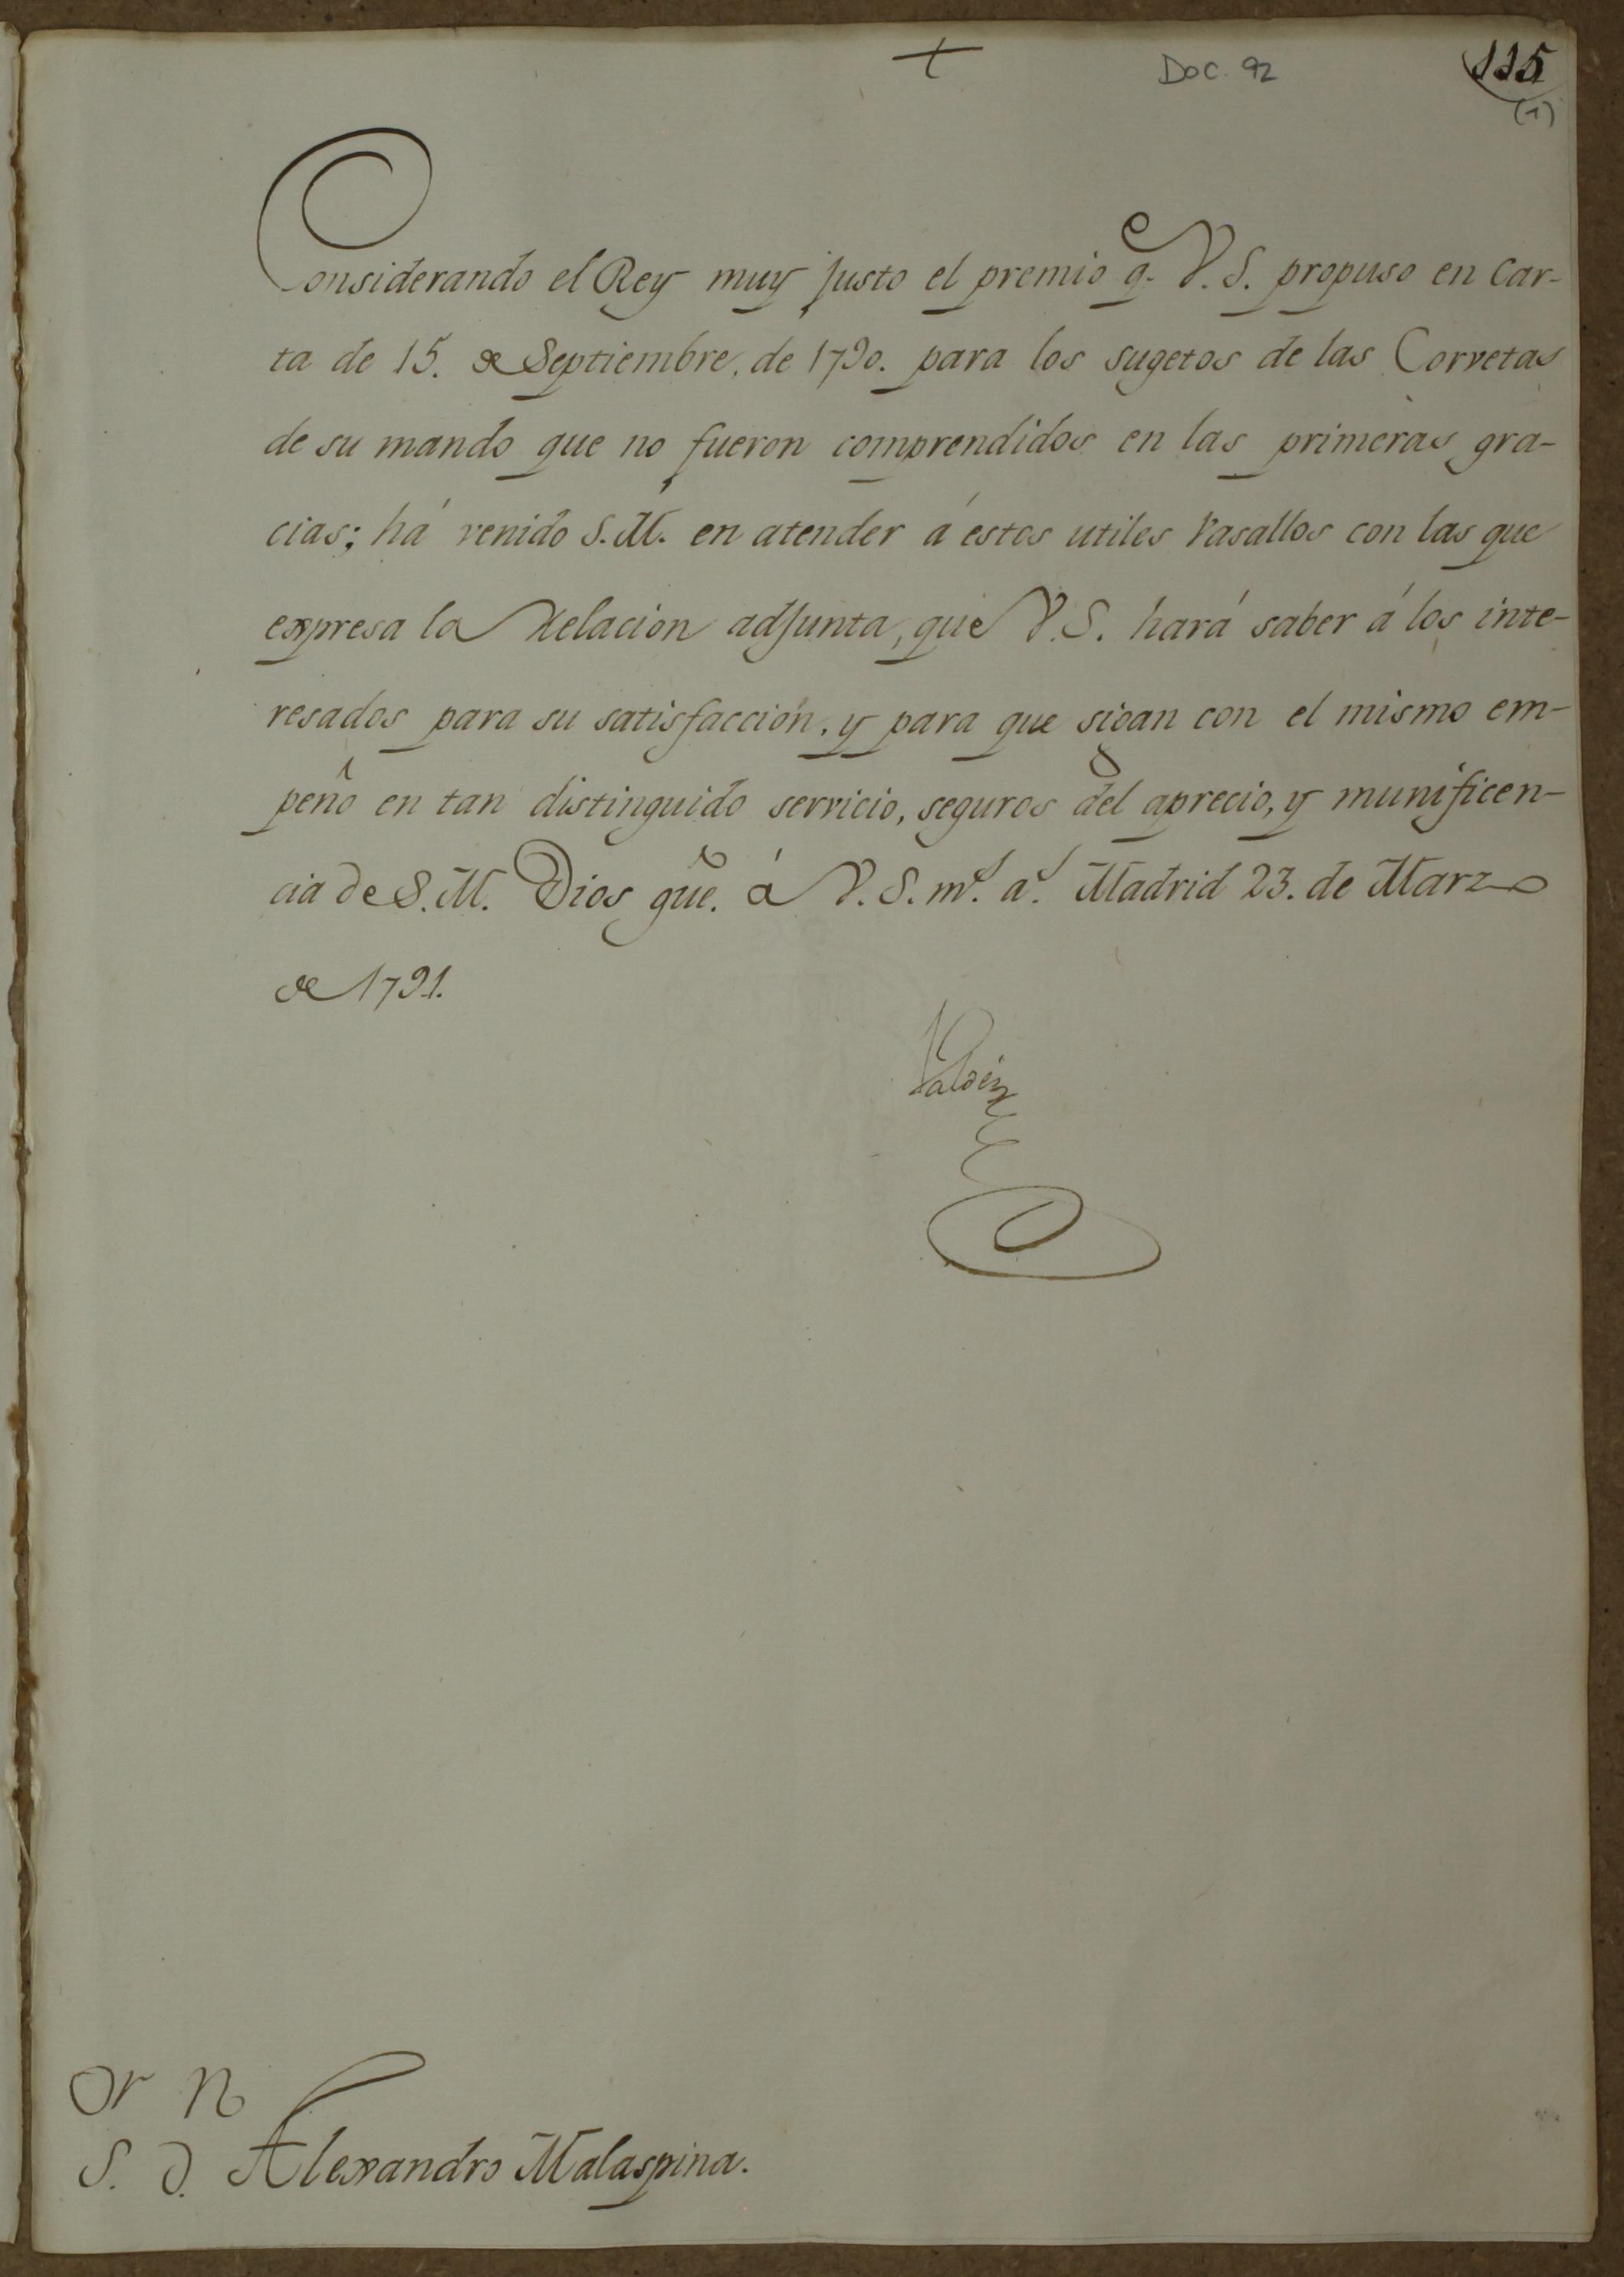 + Doc. 92 115
(1)
Considerando el Rey muy justo el premio q.e V.S. propuso en Car-
ta de 15. de Septiembre, de 1790. para los sugetos de las Corvetas
de su mando que no fueron comprendidos en las primeras gra-
cias; há venido S.M. en atender á estos utiles Vasallos con las que
expresa la Relacion adjunta, que V.S. hará saber á los inte-
resados para su satisfacción, y para que sigan con el mismo em-
peño en tan distinguido servicio, seguros del aprecio, y munificen-
cia de S.M. Dios gue. á V.S. m.s a.s Madrid 23. de Marzo
de 1791.
Valdés
S.or D.n Alexandro Malaspina.